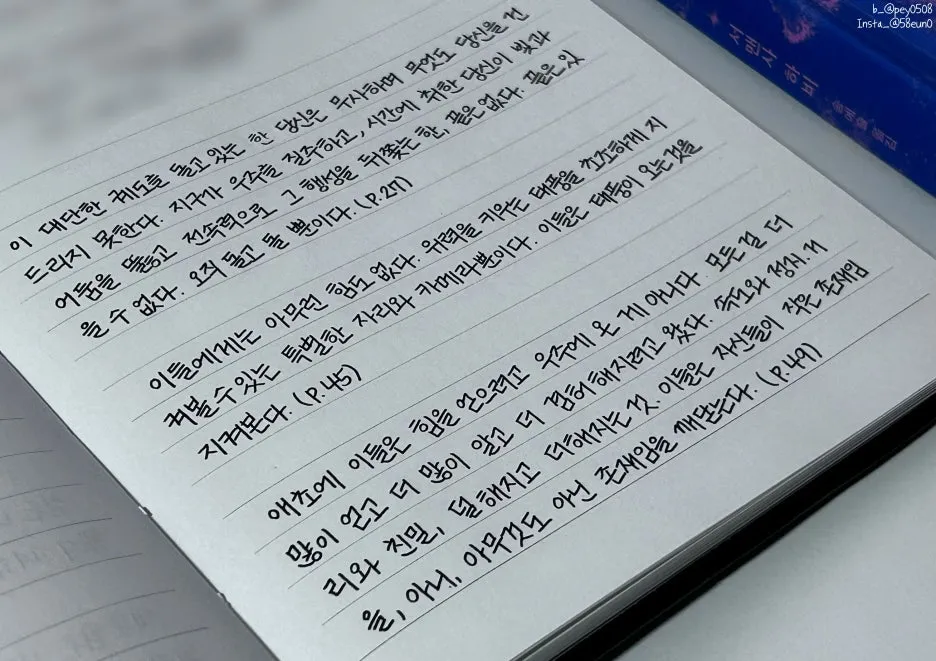 b_@pey0508
Insta_@58eun0
서맨사 하비
이 대단한 궤도를 돌고 있는 한 당신은 무사하며 무엇도 당신을 건
드리지 못한다. 지구가 우주를 질주하고, 시간에 취한 당신이 빛과
어둠을 뚫고 전속력으로 그 행성을 뒤쫓는 한, 끝은 없다. 끝은 있
을 수 없다. 오직 돌고 돌 뿐이다. (P.27)
이들에게는 아무런 힘도 없다. 위력을 키우는 태풍을 초조하게 지
켜볼 수 있는 특별한 자리와 카메라뿐이다. 이들은 태풍이 오는 것을
지켜본다. (P.45)
애초에 이들은 힘을 얻으려고 우주에 온 게 아니다. 모든 걸 더
많이 얻고 더 많이 알고 더 겸허해지려고 왔다. 속도와 정지. 거
리와 친밀, 덜해지고 더해지는 것. 이들은 자신들이 작은 존재임
을, 아니, 아무것도 아닌 존재임을 깨닫는다. (P.49)